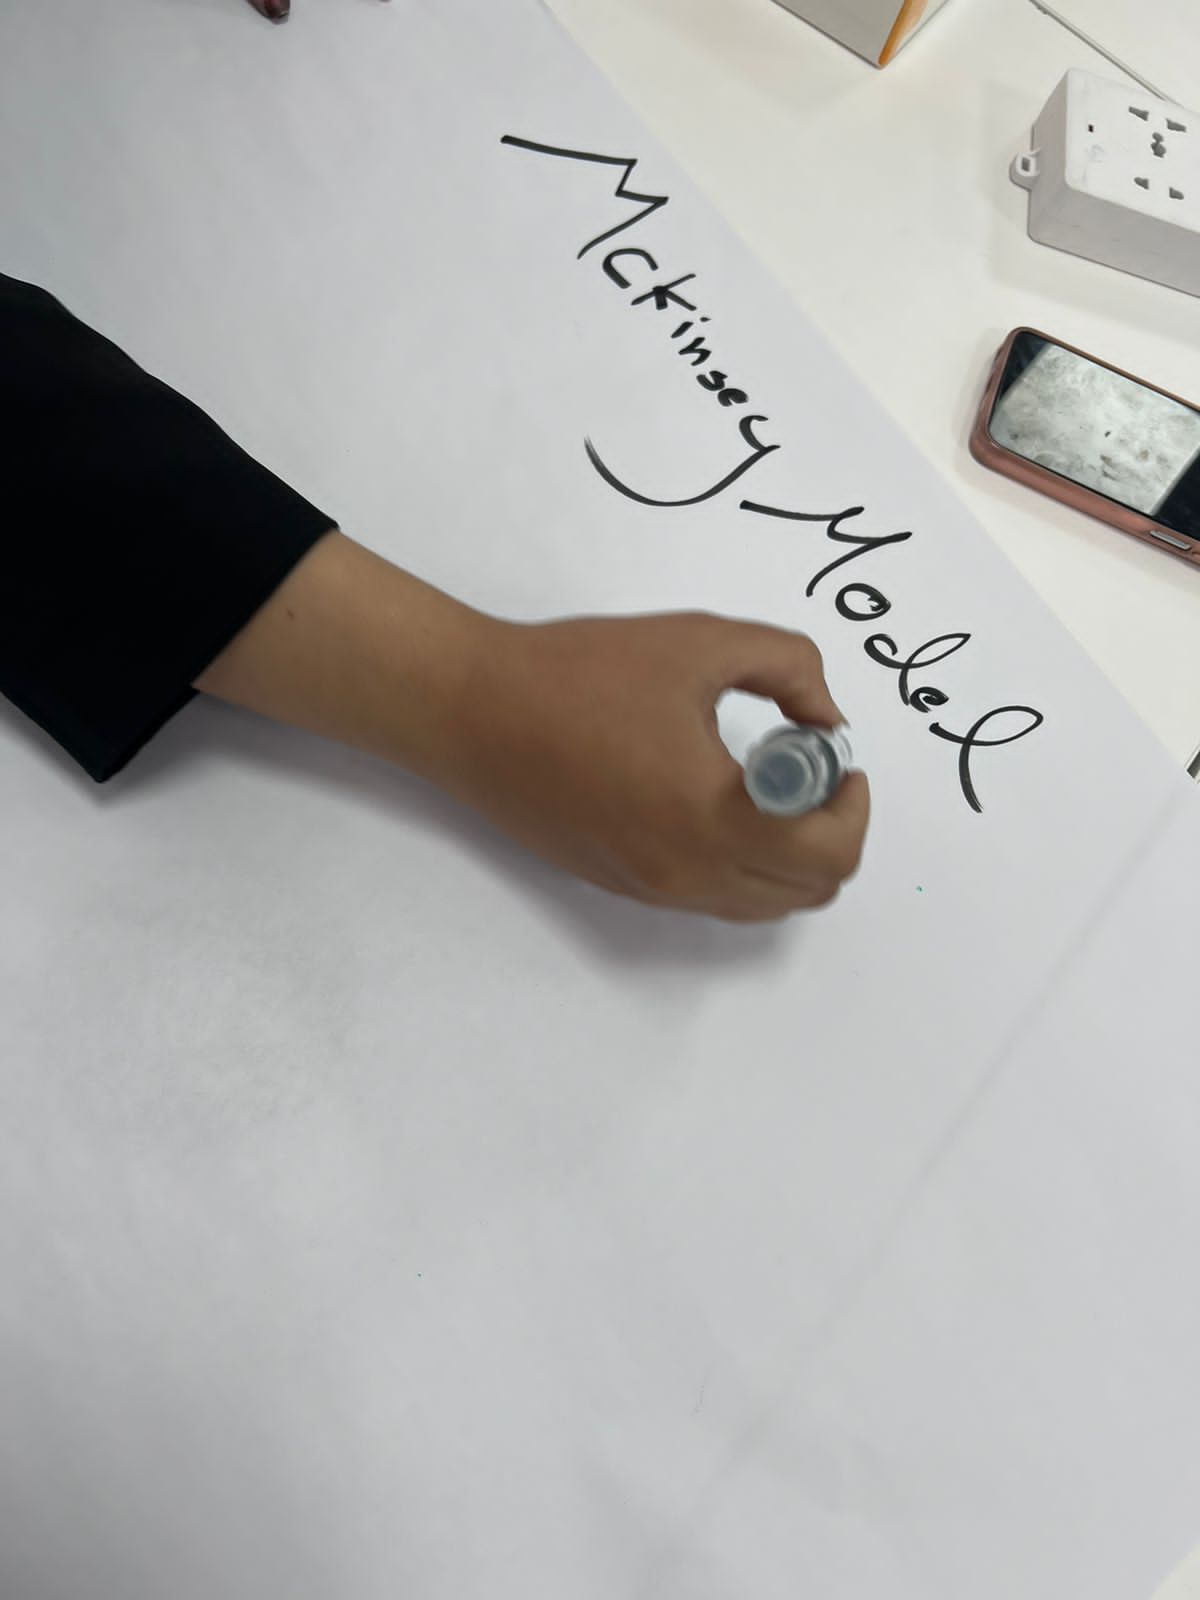 Mckinsey Model